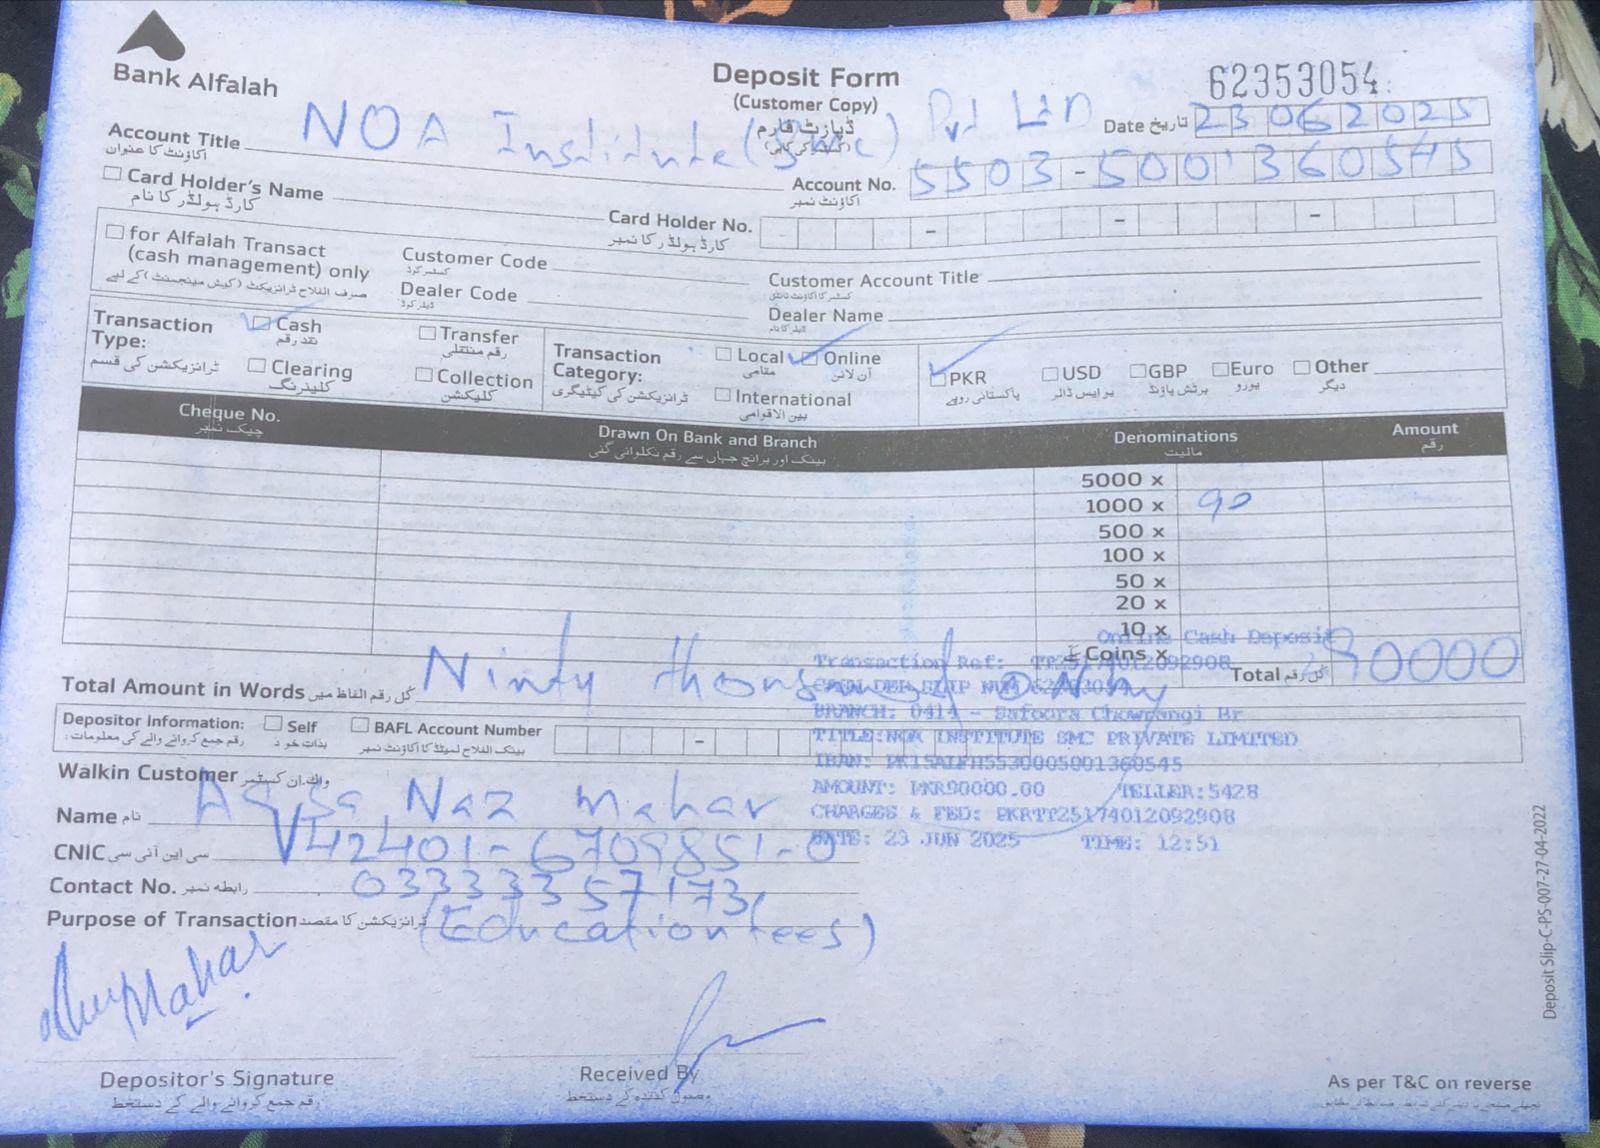 Bank Alfalah
Deposit Form
(Customer Copy)
ڈپازٹ فارم
62353054
Date تاریخ 23062025
Account Title NOA Institute (Smc) Pvt Ltd
اکاؤنٹ کا عنوان
Account No. 5503-5001360545
اکاؤنٹ نمبر
Card Holder's Name
کارڈ ہولڈر کا نام
Card Holder No.
کارڈ ہولڈر کا نمبر
for Alfalah Transact
(cash management) only
صرف الفلاح ٹرانزیکٹ (کیش مینجمنٹ) کے لیے
Customer Code
کسٹمر کوڈ
Customer Account Title
کسٹمر کا اکاؤنٹ ٹائٹل
Dealer Code
ڈیلر کوڈ
Dealer Name
ڈیلر کا نام
Transaction Type:
ٹرانزیکشن کی قسم
Cash
نقد رقم
Transfer
رقم منتقلی
Clearing
کلیئرنگ
Collection
کلیکشن
Transaction Category:
ٹرانزیکشن کی کیٹیگری
Local
مقامی
Online
آن لائن
International
بین الاقوامی
PKR
پاکستانی روپے
USD
یو ایس ڈالر
GBP
برٹش پاؤنڈ
Euro
یورو
Other
دیگر
Cheque No.
چیک نمبر
Drawn On Bank and Branch
بینک اور برانچ جہاں سے رقم نکلوائی گئی
Denominations
مالیت
Amount
رقم
5000 x
1000 x 90
500 x
100 x
50 x
20 x
10 x
Coins x
Total کل رقم 90000
Total Amount in Words کل رقم الفاظ میں Ninty thousand only
Online Cash Deposit
Transaction Ref: TT25174012092908
BRANCH: 0414 - Safoora Chowrangi Br
TITLE:NOA INSTITUTE SMC PRIVATE LIMITED
IBAN: PK15ALFH5530005001360545
AMOUNT: PKR90000.00 TELLER:5428
CHARGES & FED: PKRTT25174012092908
DATE: 23 JUN 2025 TIME: 12:51
Depositor Information:
رقم جمع کروانے والے کی معلومات:
Self
بذات خود
BAFL Account Number
بینک الفلاح لمیٹڈ کا اکاؤنٹ نمبر
Walkin Customer واک ان کسٹمر
Name نام Naz Mahar
CNIC سی این آئی سی 42401-6709851-0
Contact No. رابطہ نمبر 03333357173
Purpose of Transaction ٹرانزیکشن کا مقصد (Education fees)
Mahar
Depositor's Signature
رقم جمع کروانے والے کے دستخط
Received By
وصول کنندہ کے دستخط
As per T&C on reverse
Deposit Slip-C-PS-007-27-04-2022